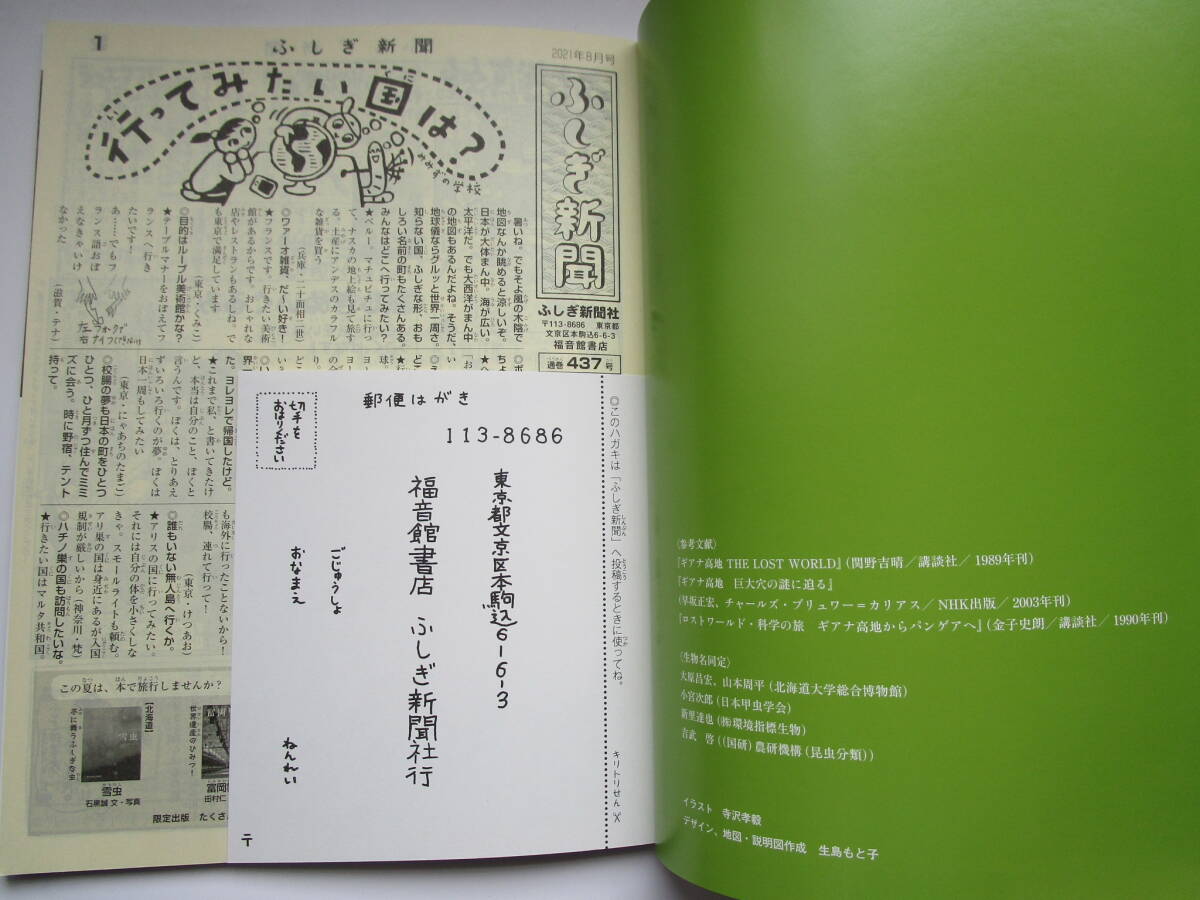 1
ふしぎ新聞
2021年8月号
行ってみたい国は？
みみずの学校
ふしぎ新聞
ふしぎ新聞社
〒113-8686 東京都
文京区本駒込6-6-3
福音館書店
通巻437号
暑いね。でもそよ風の木陰で
地図なんか眺めると涼しいぞ。
日本が大体まん中。海が広い。
太平洋だ。でも大西洋がまん中
の地図もあるんだよね。そうだ、
地球儀ならグルッと世界一周さ。
知らない国、ふしぎな形、おも
しろい名前の町もたくさんある。
みんなはどこへ行ってみたい？
★ペルー。マチュピチュに行っ
て、ナスカの地上絵も見て旅す
る。土産にアンデスのカラフル
な雑貨を買う
（兵庫・二十面相二世）
◎ワァーオ雑貨、だ〜い好き！
★フランスです。行きたい美術
館があるからです。おしゃれな
店やレストランもあるしね。で
も東京で満足しています
（東京・くみこ）
◎目的はルーブル美術館かな？
★テーブルマナーをおぼえてフ
ランスへ行き
たいです！
あ……でもフ
ランス語おぼ
えなきゃいけ
なかった
（滋賀・テナ）
左フォーク
た。ヨレヨレで帰国したけど。
★これまで私、と書いてきたけ
ど、本当は自分のこと、ぼくと
言うんです。ぼくは、とりあえ
ずいろいろ行くのが夢。ぼくは
日本一周もしてみたい
（東京・にゃあちのたまご）
◎校腸の夢も日本の町をひとつ
ひとつ、ひと月ずつ住んでミミ
ズに会う。時に野宿、テント
持って。
も海外に行ったことないから！
校腸、連れて行って！
（東京・けつあお）
◎誰もいない無人島へ行くか。
★アリスの国に行ってみたい。
それには自分の体を小さくしな
きゃ。スモールライトも頼む。
アリ巣の国は身近にあるが入国
規制が厳しいから（神奈川・梵）
◎ハチノ巣の国も訪問したいな。
★行きたい国はマルタ共和国。
この夏は、本で旅行しませんか？
【北海道】
冬に舞うふしぎな虫
雪虫
雪虫
石黒誠 文・写真
世界遺産のひみつ！
富岡
田村仁
限定出版 たくさ
郵便はがき
切手を
おはりください
113-8686
東京都文京区本駒込6-6-3
福音館書店 ふしぎ新聞社行
ごじゅうしょ
おなまえ
ねんれい
〒
◎このハガキは「ふしぎ新聞」へ投稿するときに使ってね。
キリトリせん
〈参考文献〉
『ギアナ高地 THE LOST WORLD』（関野吉晴／講談社／1989年刊）
『ギアナ高地 巨大穴の謎に迫る』
（早坂正宏、チャールズ・ブリュワー＝カリアス／NHK出版／2003年刊）
『ロストワールド・科学の旅 ギアナ高地からパンゲアへ』（金子史朗／講談社／1990年刊）
〈生物名同定〉
大原昌宏、山本周平（北海道大学総合博物館）
小宮次郎（日本甲虫学会）
新里達也（㈱環境指標生物）
吉武 啓（（国研）農研機構（昆虫分類））
イラスト 寺沢孝毅
デザイン、地図・説明図作成 生島もと子